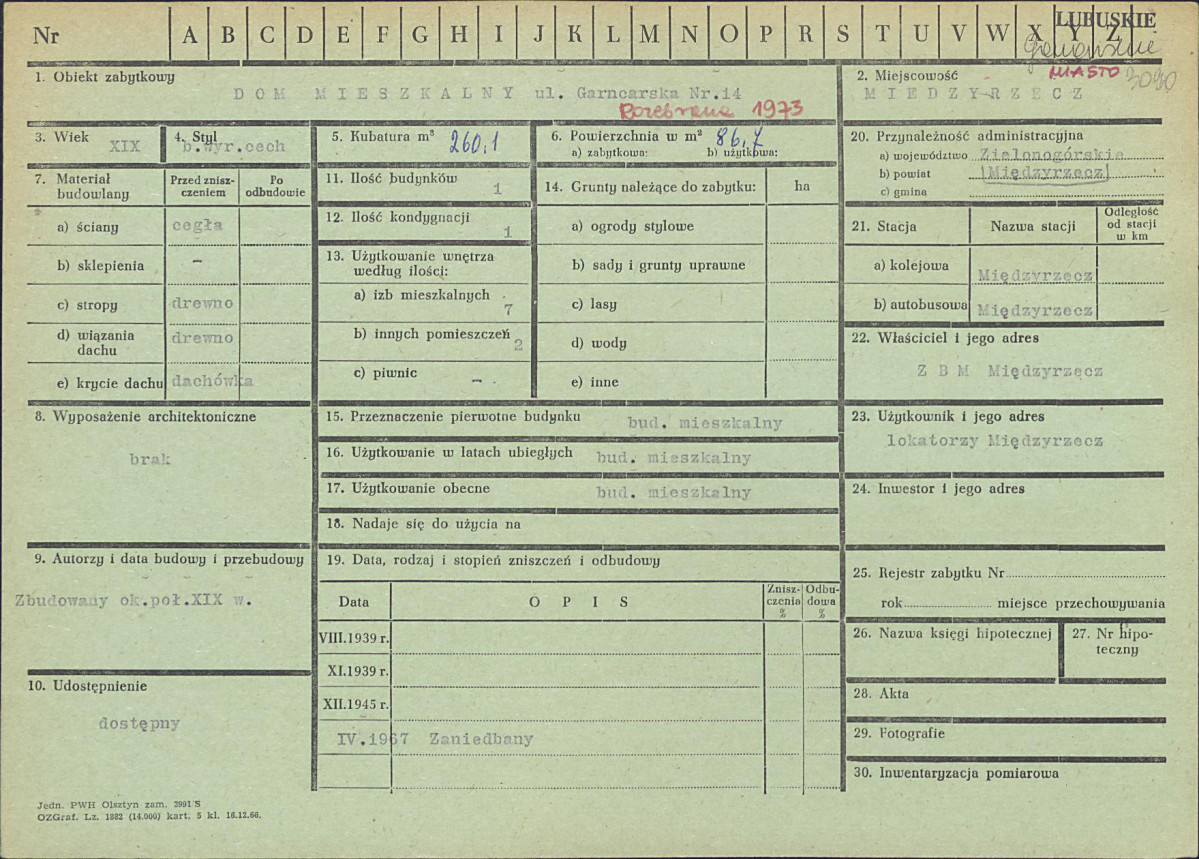 Nr A B C D E F G H I J K L M N O P R S T U V W X Y Z
LUBUSKIE
MIASTO 3090
1. Obiekt zabytkowy
DOM MIESZKALNY ul. Garncarska Nr.14
Rozebrana 1973
2. Miejscowość
MIEDZYRZECZ
3. Wiek XIX
4. Styl
b.wyr.cech
5. Kubatura m³ 260,1
6. Powierzchnia w m² 86,7
a) zabytkowa: b) użytkowa:
20. Przynależność administracyjna
a) województwo Zielonogórskie
b) powiat Międzyrzecz
c) gmina
7. Materiał budowlany
Przed zniszczeniem
Po odbudowie
a) ściany cegła
b) sklepienia –
c) stropy drewno
d) wiązania dachu drewno
e) krycie dachu dachówka
11. Ilość budynków 1
12. Ilość kondygnacji 1
13. Użytkowanie wnętrza
według ilości:
a) izb mieszkalnych 7
b) innych pomieszczeń 2
c) piwnic –
14. Grunty należące do zabytku: ha
a) ogrody stylowe
b) sady i grunty uprawne
c) lasy
d) wody
e) inne
21. Stacja
Nazwa stacji
Odległość
od stacji
w km
a) kolejowa Międzyrzecz
b) autobusowa Międzyrzecz
22. Właściciel i jego adres
Z B M Międzyrzecz
8. Wyposażenie architektoniczne
brak
15. Przeznaczenie pierwotne budynku bud. mieszkalny
16. Użytkowanie w latach ubiegłych bud. mieszkalny
17. Użytkowanie obecne bud. mieszkalny
18. Nadaje się do użycia na
23. Użytkownik i jego adres
lokatorzy Międzyrzecz
24. Inwestor i jego adres
9. Autorzy i data budowy i przebudowy
Zbudowany ok.poł.XIX w.
19. Data, rodzaj i stopień zniszczeń i odbudowy
Data
O P I S
Znisz-
czenia
%
Odbu-
dowa
%
VIII.1939 r.
XI.1939 r.
XII.1945 r.
IV.1967 Zaniedbany
25. Rejestr zabytku Nr
rok miejsce przechowywania
26. Nazwa księgi hipotecznej
27. Nr hipo-
teczny
10. Udostępnienie
dostępny
28. Akta
29. Fotografie
30. Inwentaryzacja pomiarowa
Jedn. PWH Olsztyn zam. 3991/S
OZGraf. Lz. 1882 (14.000) kart. 5 kl. 16.12.66.